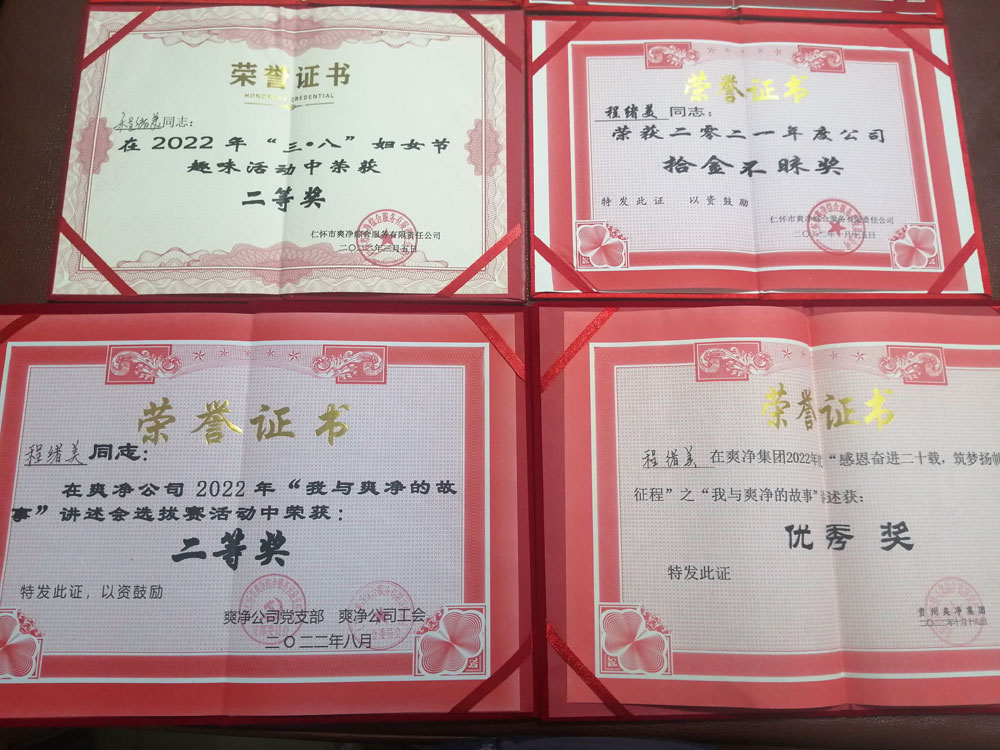 荣誉证书
程绪美同志：
在2022年“三·八”妇女节
趣味活动中荣获
二等奖
仁怀市爽净综合服务有限责任公司
二〇二二年三月五日
荣誉证书
程绪美 同志：
荣获二零二一年度公司
拾金不昧奖
特发此证 以资鼓励
仁怀市爽净综合服务有限责任公司
荣誉证书
程绪美同志：
在爽净公司2022年“我与爽净的故
事”讲述会选拔赛活动中荣获：
二等奖
特发此证，以资鼓励
爽净公司党支部 爽净公司工会
二〇二二年八月
荣誉证书
程绪美 在爽净集团2022年度“感恩奋进二十载，筑梦扬帆
征程”之“我与爽净的故事”讲述获：
优秀奖
特发此证
贵州爽净集团